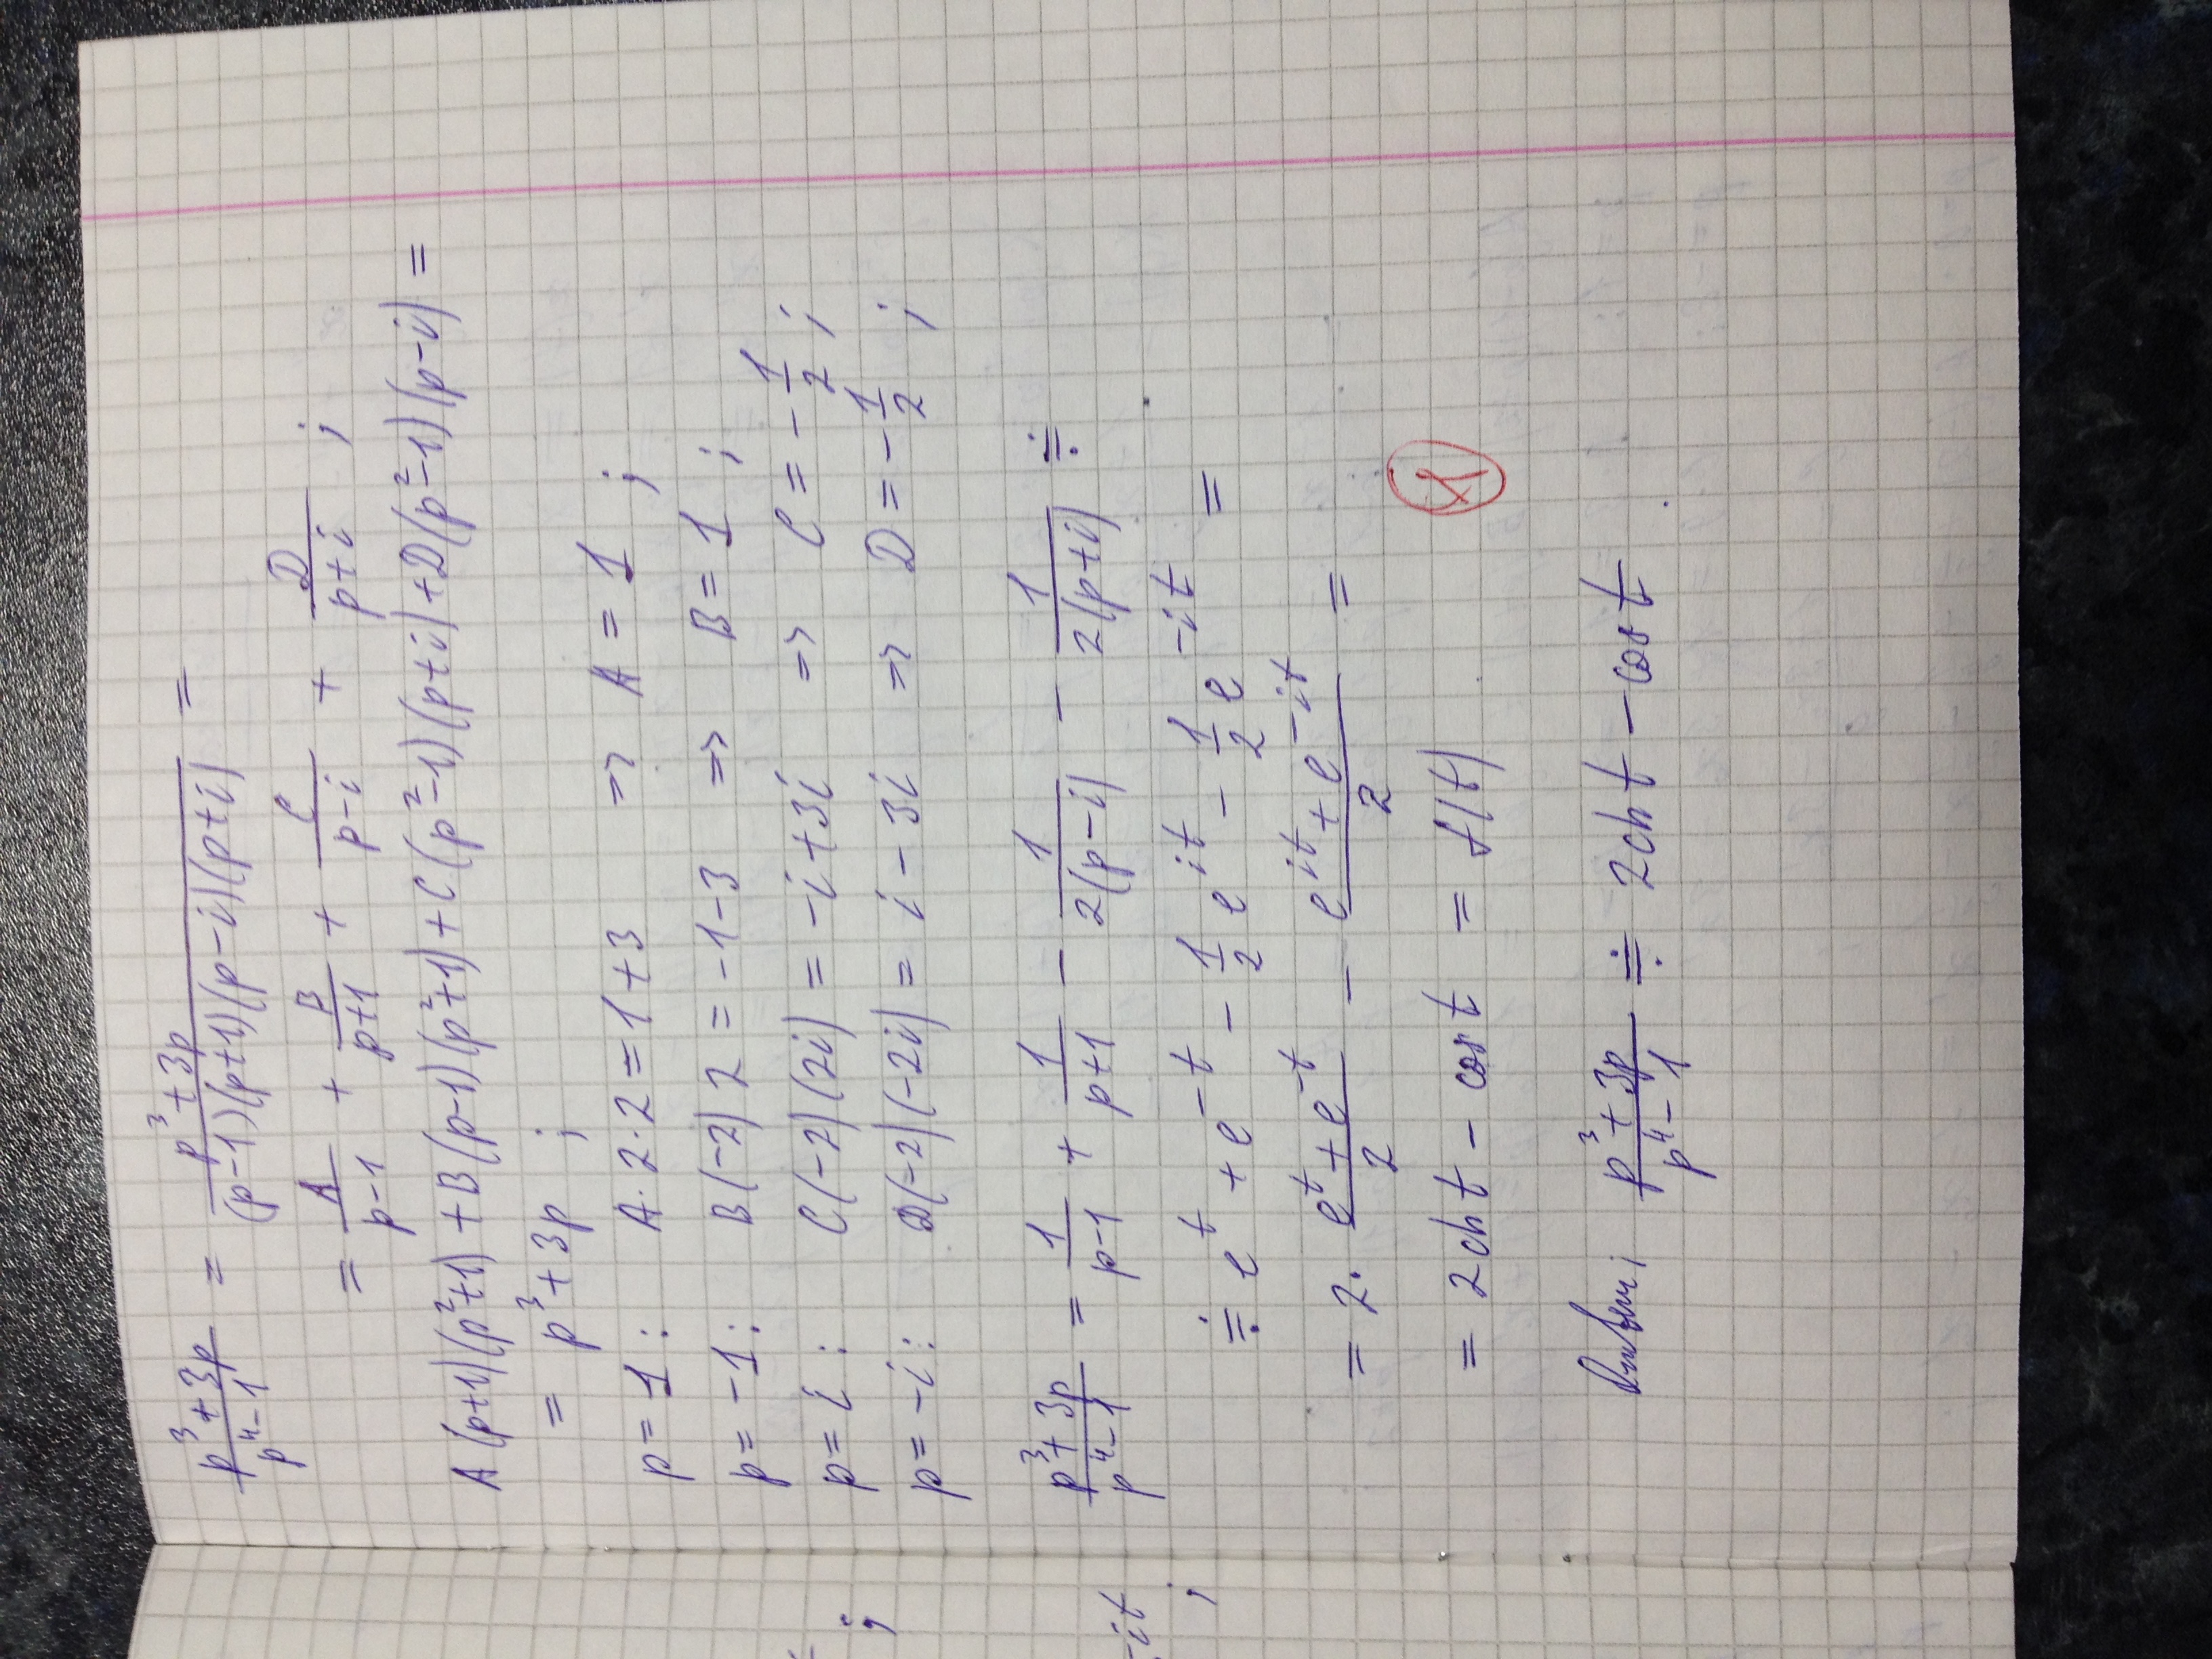 (p³+3p)/(p⁴-1) = (p³+3p)/((p-1)(p+1)(p-i)(p+i)) =
= A/(p-1) + B/(p+1) + C/(p-i) + D/(p+i) ;
A(p+1)(p²+1)+B(p-1)(p²+1)+C(p²-1)(p+i)+D(p²-1)(p-i) =
= p³+3p ;
p=1: A·2·2=1+3 => A=1 ;
p=-1: B(-2)2=-1-3 => B=1 ;
p=i: C(-2)(2i)=-i+3i => C=-1/2 ;
p=-i: D(-2)(-2i)=i-3i => D=-1/2 ;
(p³+3p)/(p⁴-1) = 1/(p-1) + 1/(p+1) - 1/(2(p-i)) - 1/(2(p+i)) ≓
≓ e^t + e^-t - 1/2 e^it - 1/2 e^-it =
= 2· (e^t+e^-t)/2 - (e^it+e^-it)/2 =
= 2ch t - cos t = f(t)
(p³+3p)/(p⁴-1) ≓ 2ch t - cos t .
-it ;
;